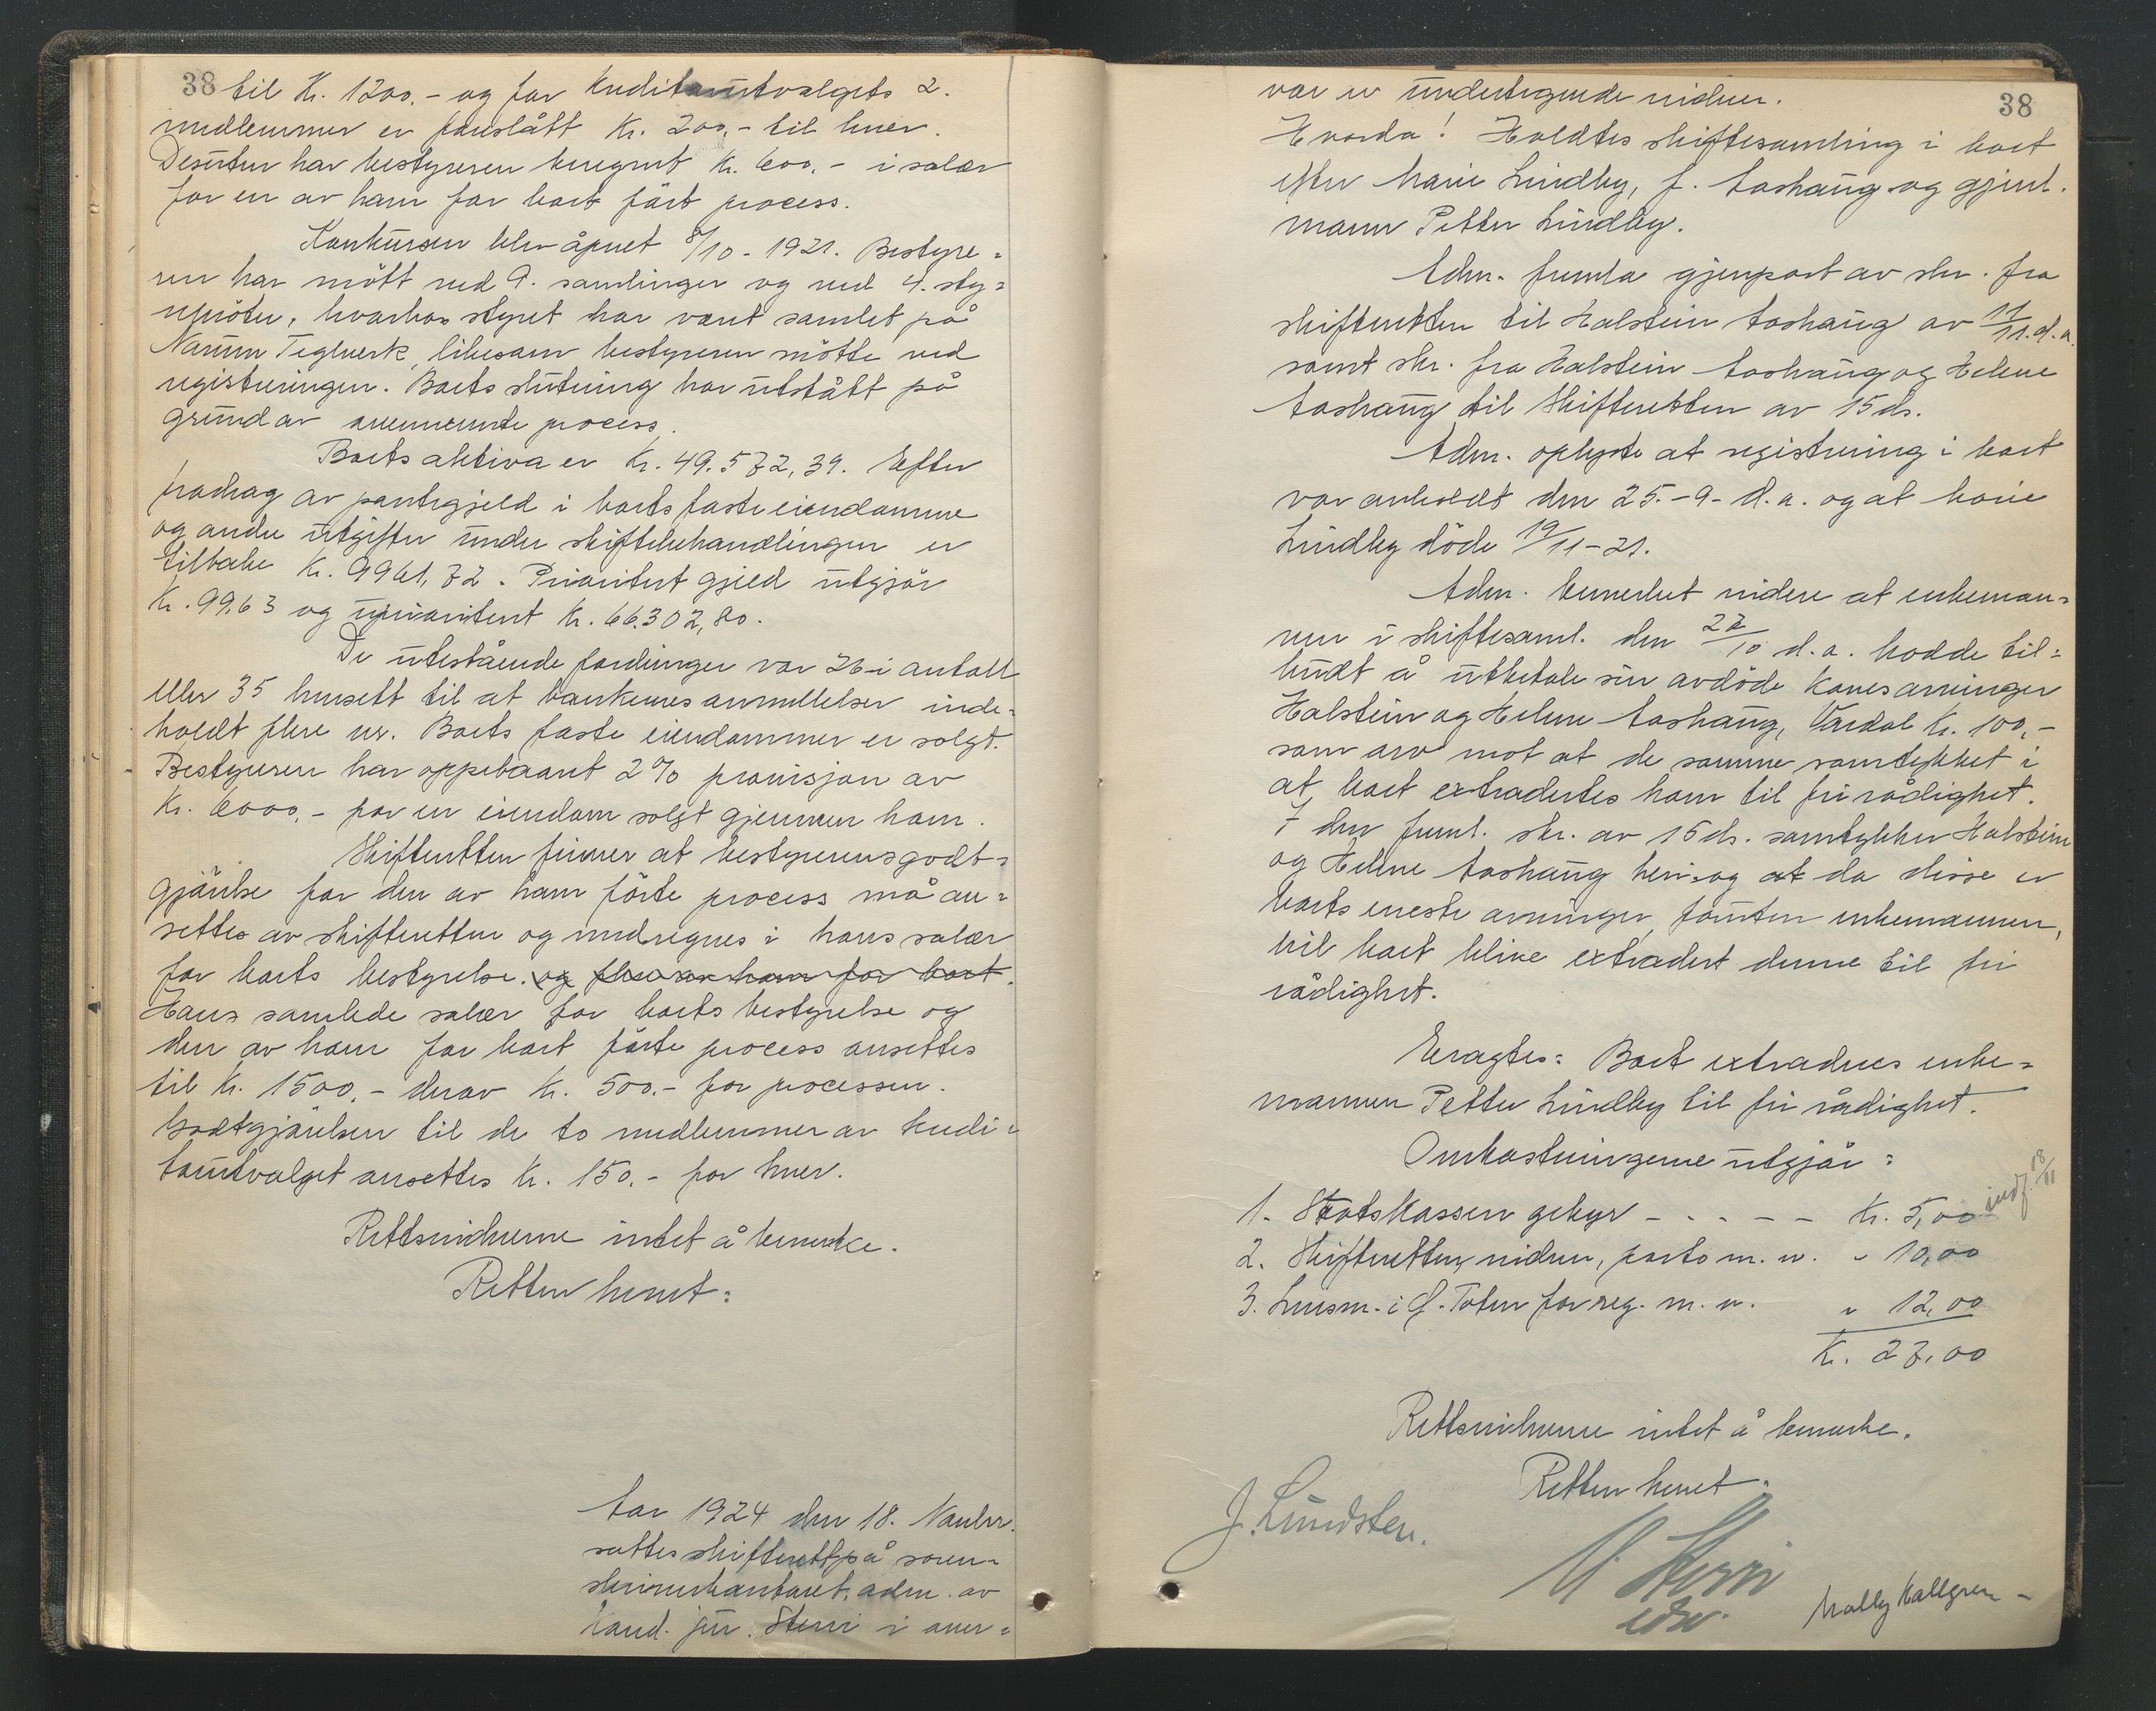 38 til Kr. 1200.- og for kreditorutvalgets 2.
medlemmer er foreslått Kr. 200,- til hver.
Desuten har bestyreren beregnet Kr. 600.- i salær
for en av ham for boet fört process.
Konkursen blev åpnet 8/10 - 1921. Bestyre=
ren har mött ved 9. samlinger og ved 4. sty=
remöter, hvorhos styret har vært samlet på
Teglverk, likesom bestyreren mötte ved
registreringen. Boets slutning har utstått på
grund av process.
Boets aktiva er Kr. 49.572,39. Efter
fradrag av pantegjeld i boets faste eiendomme
og andre utgifter under skiftebehandlingen er
tilbake Kr. 9961,72. Prioritert gjeld utgjör
Kr. 99.63 og uprioritert Kr. 66.302,80.
De utestående fordringer var 26 i antall
eller 35 hensett til at bankenes anmeldelser inde=
holdt flere nr. Boets faste eiendommer er solgt.
Bestyreren har oppebaaret 2% provisjon av
Kr. 6000,- for en eiendom solgt gjennem ham.
Skifteretten finner at bestyrerens godt=
gjörelse for den av ham förte process må an=
settes av skifteretten og medregnes i hans salær
for boets bestyrelse. og av ham for boet.
Hans samlede salær for boets bestyrelse og
den av ham for boet förte process ansettes
til Kr. 1500,- derav Kr. 500.- for processen.
Godtgjörelsen til de to medlemmer av kredi=
torutvalget ansettes Kr. 150.- for hver.
Rettsvidnerne intet å bemerke.
Retten hevet:
Aar 1924 den 18. Novbr.
sattes skifterett på soren=
skriverkontoret, adm. av
Kand. jur. Sterri i over=
38
vær av undertegnede vidner.
Hvorda! Holdtes skiftesamling i boet
efter Marie Lindby, f. Aashaug og gjenl.
mann Petter Lindby.
Adm. fremla gjenpart av skr. fra
skifteretten til Halstein Aashaug av 11/11. d.a.
samt skr. fra Halstein Aashaug og Helene
Aashaug til Skifteretten av 15 ds.
Adm. oplyste at registrering i boet
var anholdt den 25.-9- d.a. og at Marie
Lindby döde 19/11-21.
Adm. bemerket videre at enkeman=
nen i skiftesaml. den 27/10 d.a. hadde til=
budt å utbetale sin avdöde kones arvinger
Halstein og Helene Aashaug, Vardal Kr. 100,-
som arv mot at de samme samtykket i
at boet extradertes ham til fri rådighet.
I den freml. skr. av 15 ds. samtykker Halstein
og Helene Aashaug heri og at da disse er
boets eneste arvinger, foruten enkemannen,
vil boet blive extradert denne til fri
rådighet.
Eragtes: Boet extraderes enke=
mannen Petter Lindby til fri rådighet.
Omkostningerne utgjör:
1. Statskassen gebyr - - - - - Kr. 5,00 indf. 18/11
2. Skifteretten, vidner, porto m. v. " 10,00
3. Lensm. i Ö. Toten for reg. m. v. " 12,00
Kr. 27,00
Rettsvidnerne intet å bemerke.
Retten hevet:
J. Lundsten.
Sterri
edsv.
Molly Hallgren -